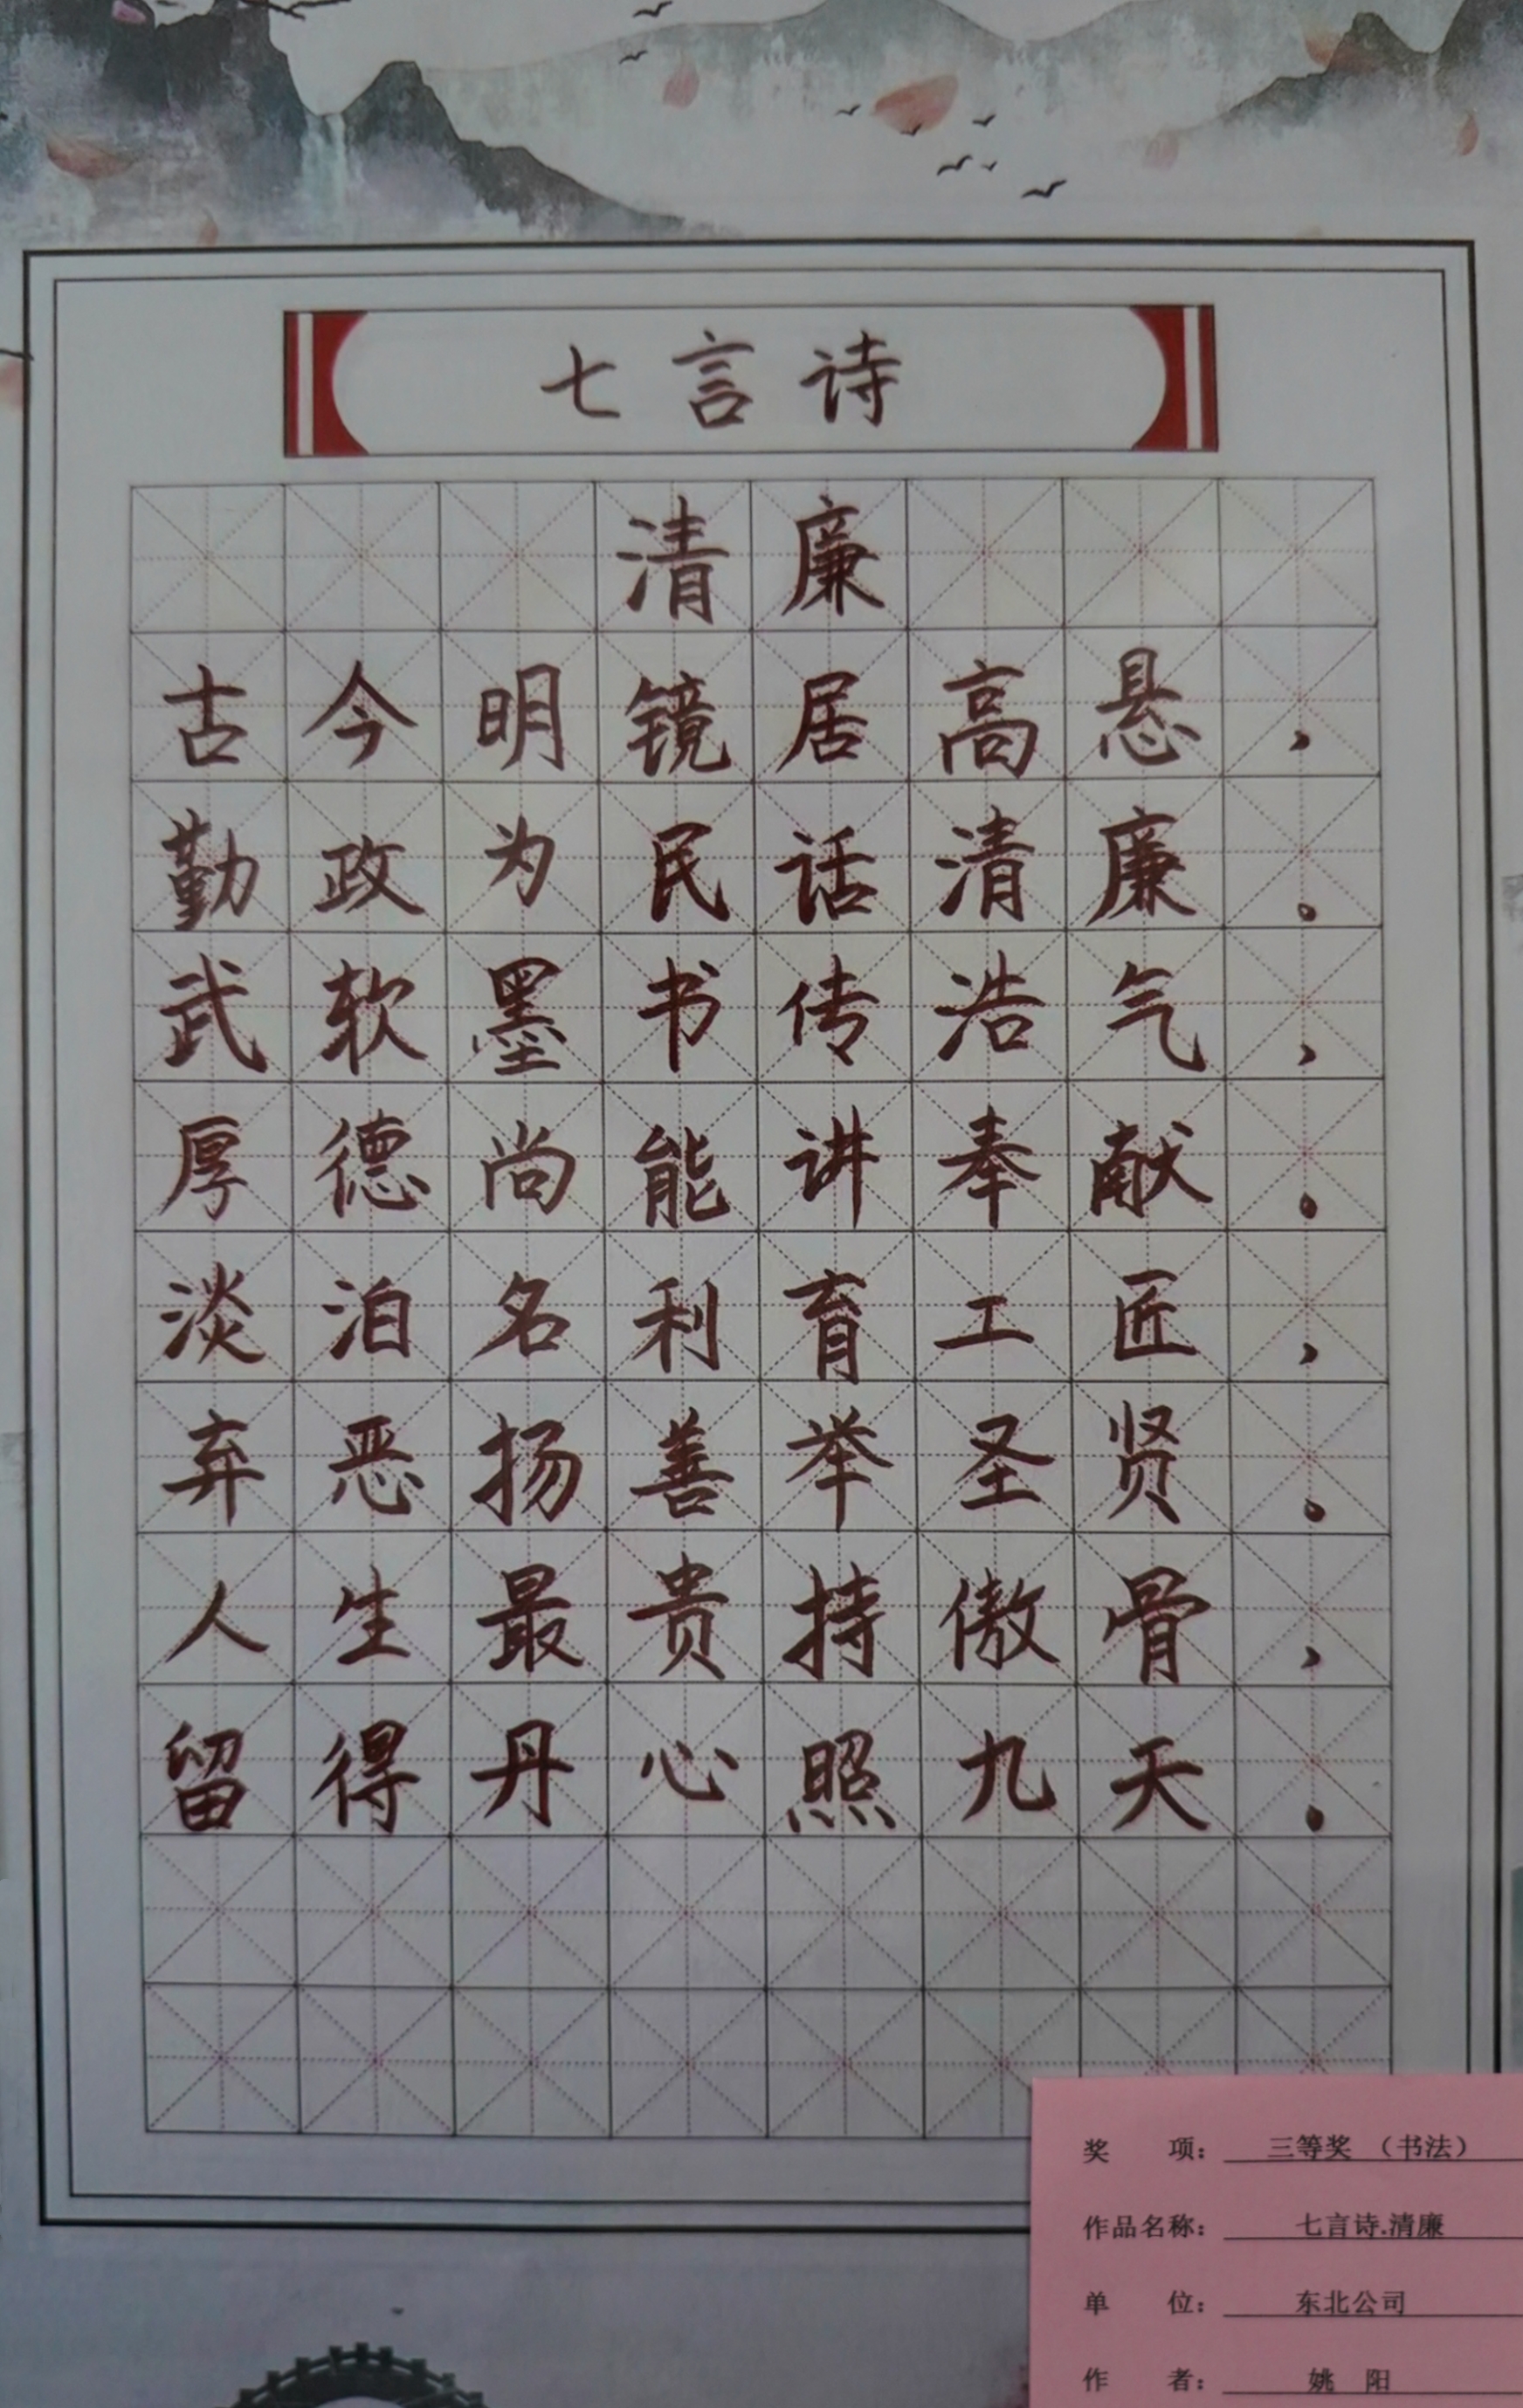 七言诗
清廉
古今明镜居高悬，
勤政为民话清廉。
武软墨书传浩气，
厚德尚能讲奉献。
淡泊名利育工匠，
弃恶扬善举圣贤。
人生最贵持傲骨，
留得丹心照九天。
奖 项：三等奖（书法）
作品名称：七言诗.清廉
单 位：东北公司
作 者：姚 阳